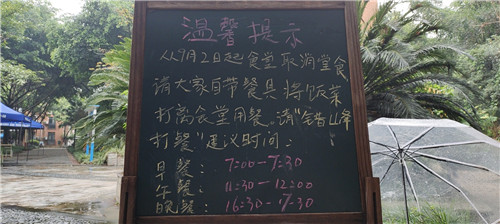 温馨提示
从9月2日起食堂取消堂食
请大家自带餐具将饭菜
打离食堂用餐。请"错峰
打餐"建议时间：
早餐： 7:00-7:30
午餐： 11:30-12:00
晚餐： 16:30-17:30